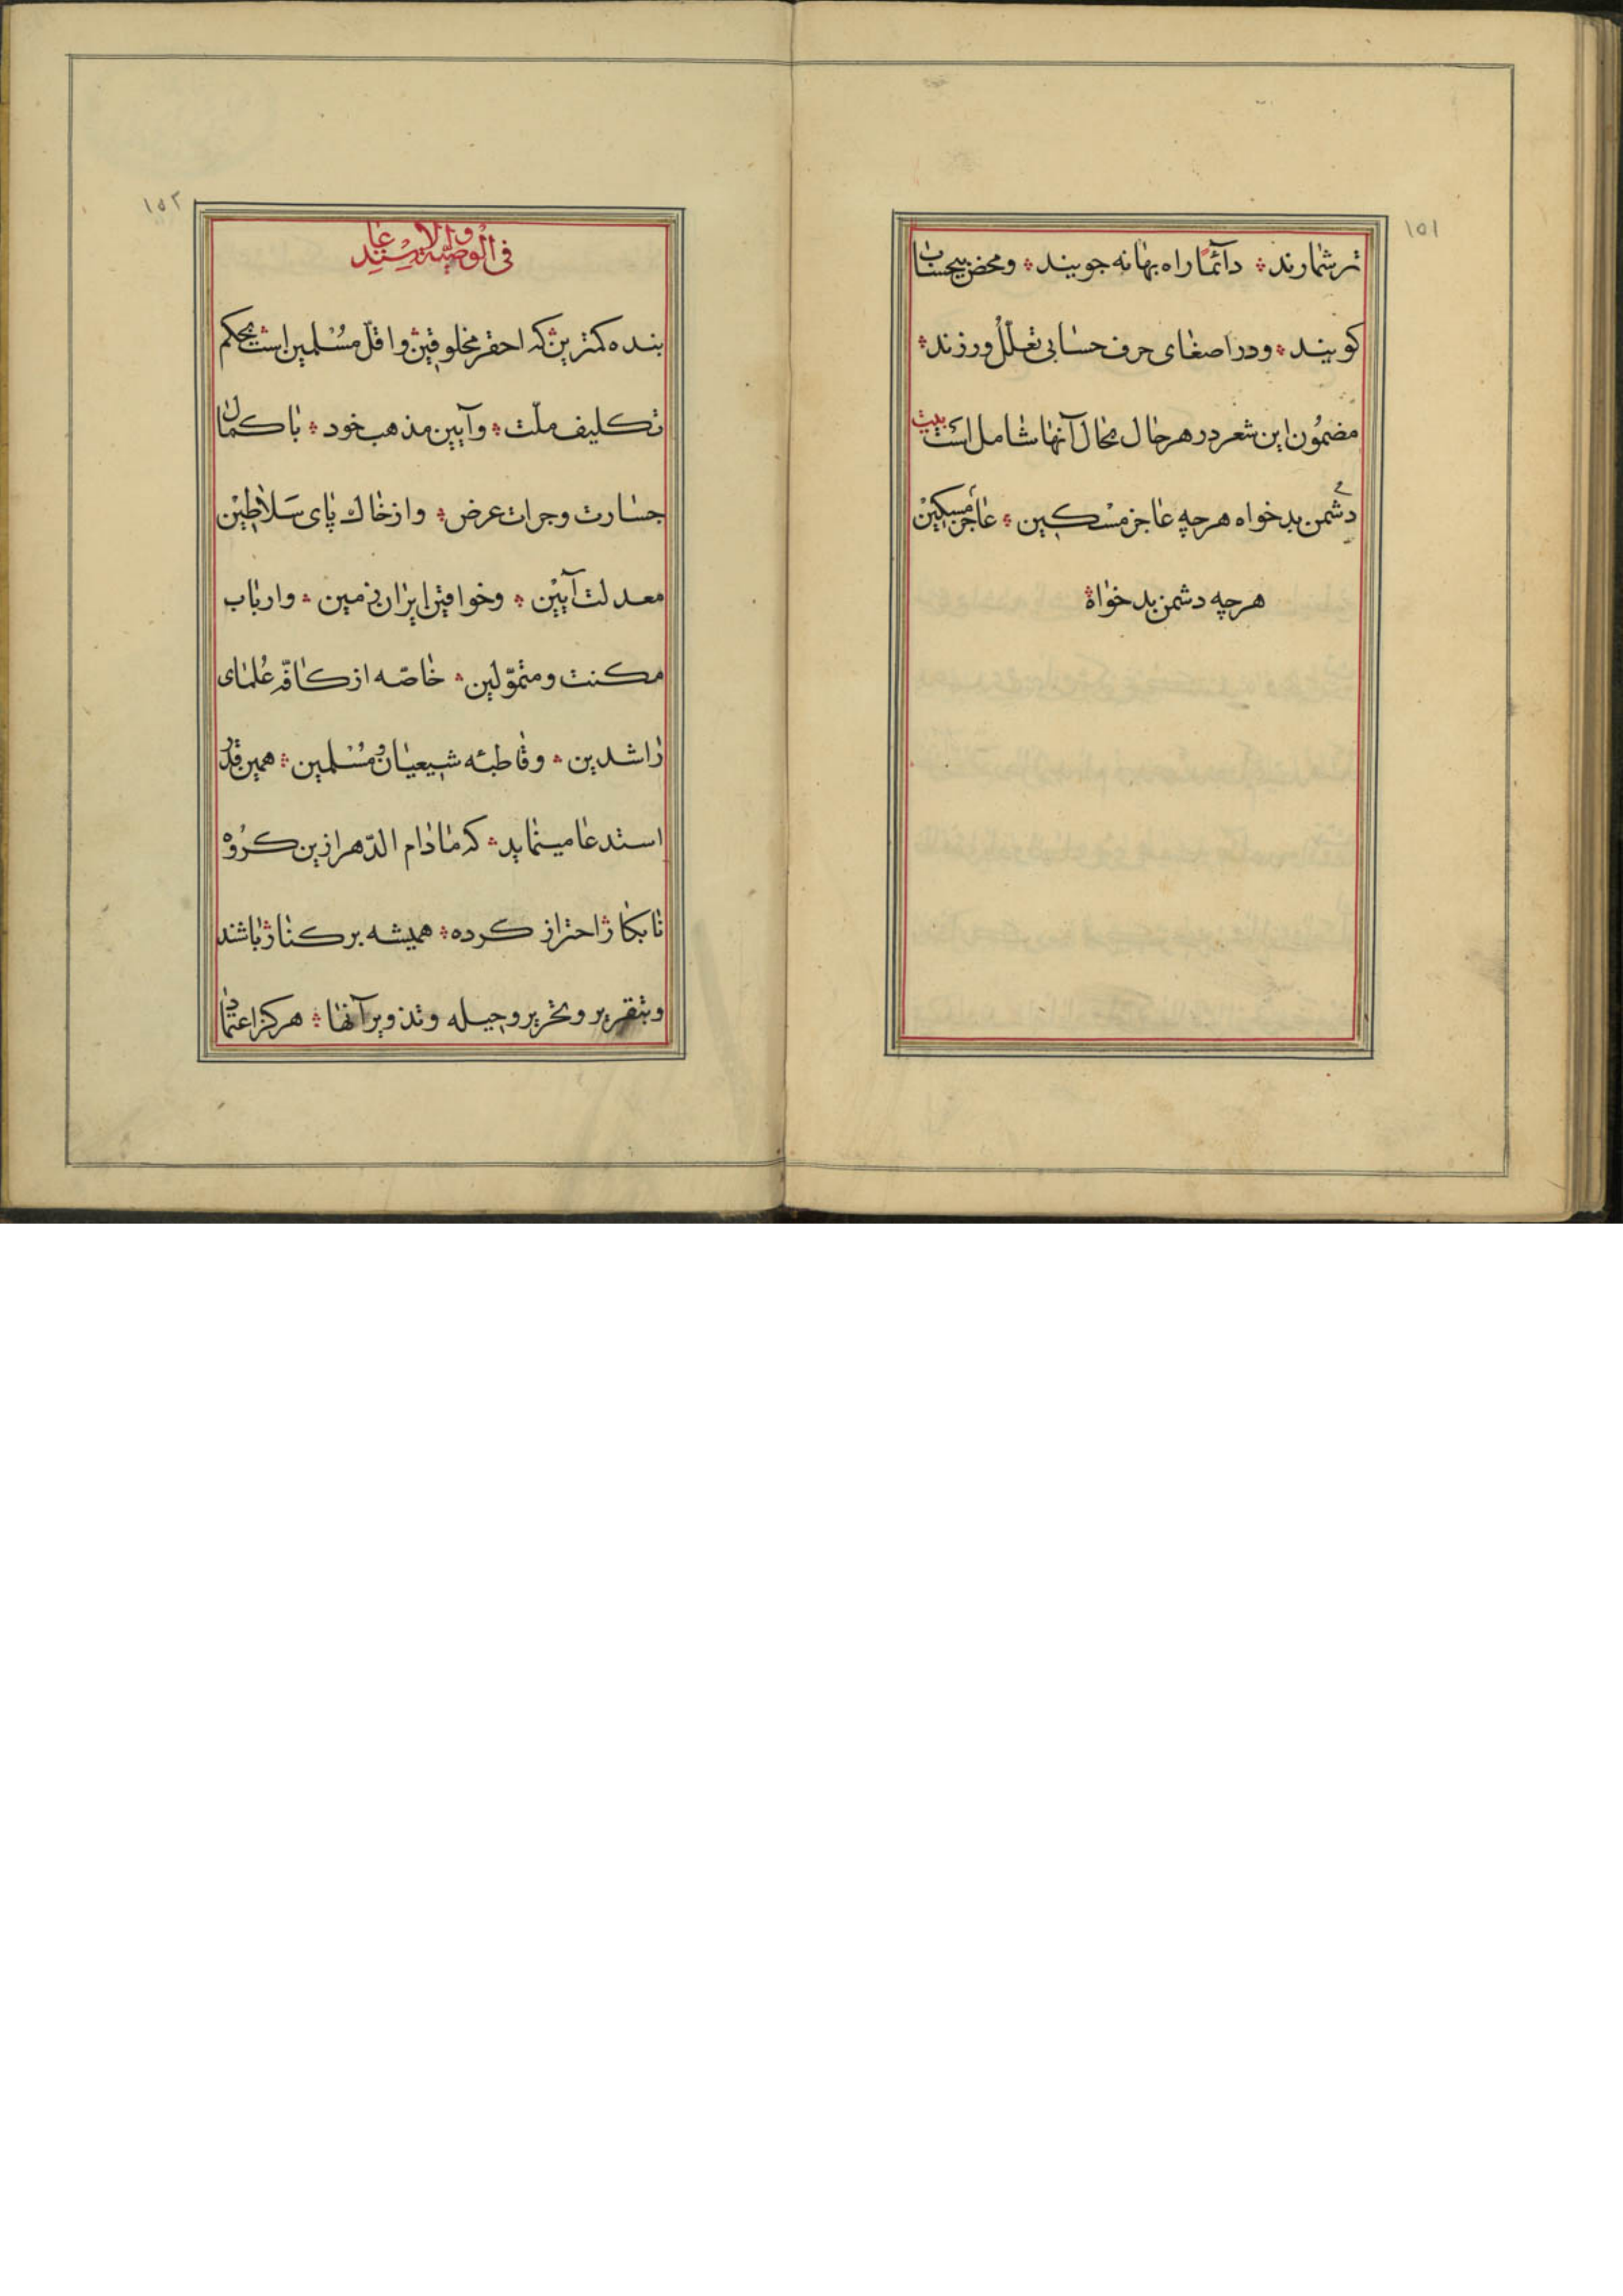 ١٥١
تر شمارند ؞ دآئما راه بهانه جویند ؞ و محض بیحساب
کویند ؞ و در اصغای حرف حسابی تعلّل ورزند ؞
مضمُون این شعر در هر حال بحال آنها شامل است بیت
دُشمن بدخواه هرچه عاجز مسْکین ؞ عاجز مسکینْ
هرچه دشمن بدخواه ؞
١٥٢
فی الوصیّة والاسْتدعا
بنده کمترین ؞ که احقر مخلوقین ؞ و اقلّ مسْلمین است ؞ بحکم
تکلیف ملّت ؞ و آیین مذهب خود ؞ با کمال
جسارت و جرات عرض ؞ و از خاك پای سَلاطیْن
معدلت آییْن ؞ و خواقین ایران زمین ؞ و ارباب
مکنت و متموّلین ؞ خاصّه از کافّه عُلمای
راشدین ؞ و قاطبهٔ شیعیان و مُسْلمین ؞ همین قدر
استدعا مینماید ؞ که مادام الدّهر ازین کرُوه
نابکار ؞ احتراز کرده ؞ همیشه بر کنار ؞ باشند
و بتقریر و تحریر و حیله و تذویر آنها ؞ هرکز اعتماد